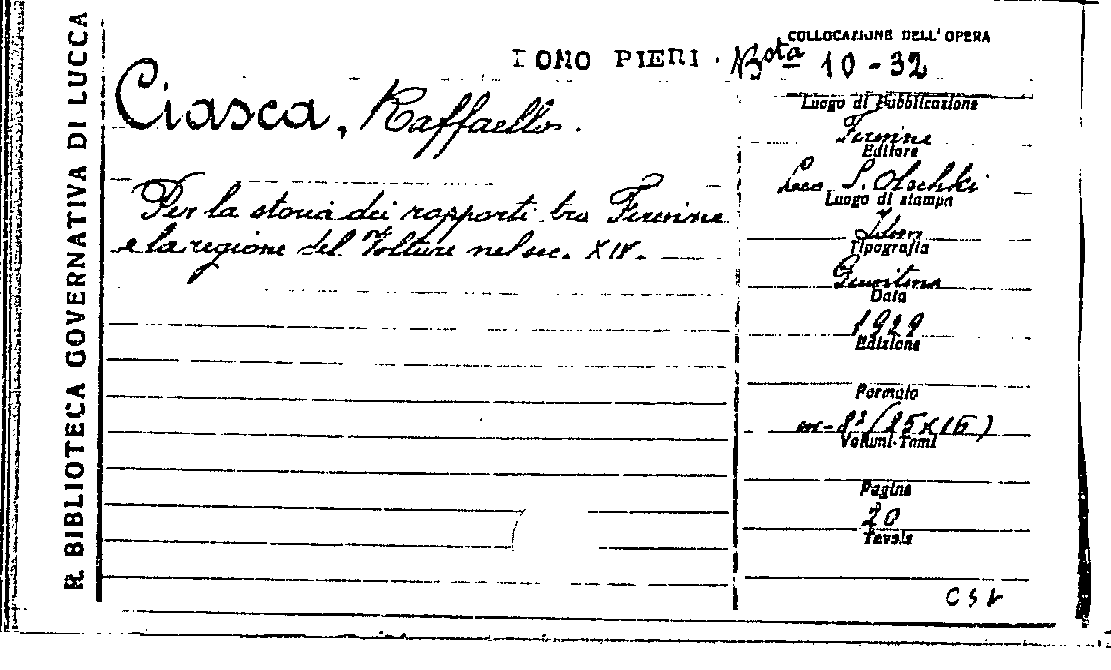 R. BIBLIOTECA GOVERNATIVA DI LUCCA
DONO PIERI. Bta 10-32
COLLOCAZIONE DELL'OPERA
Ciasca, Raffaello.
Per la storia dei rapporti tra Firenze
e la regione del Volture nel sec. XIV.
Luogo di Pubblicazione
Firenze
Editore
Leo S. Olschki
Luogo di stampa
Idem
Tipografia
Giuntina
Data
1929
Edizione
Formato
in-8º (25x16)
Volumi-Tomi
Pagine
20
Tavole